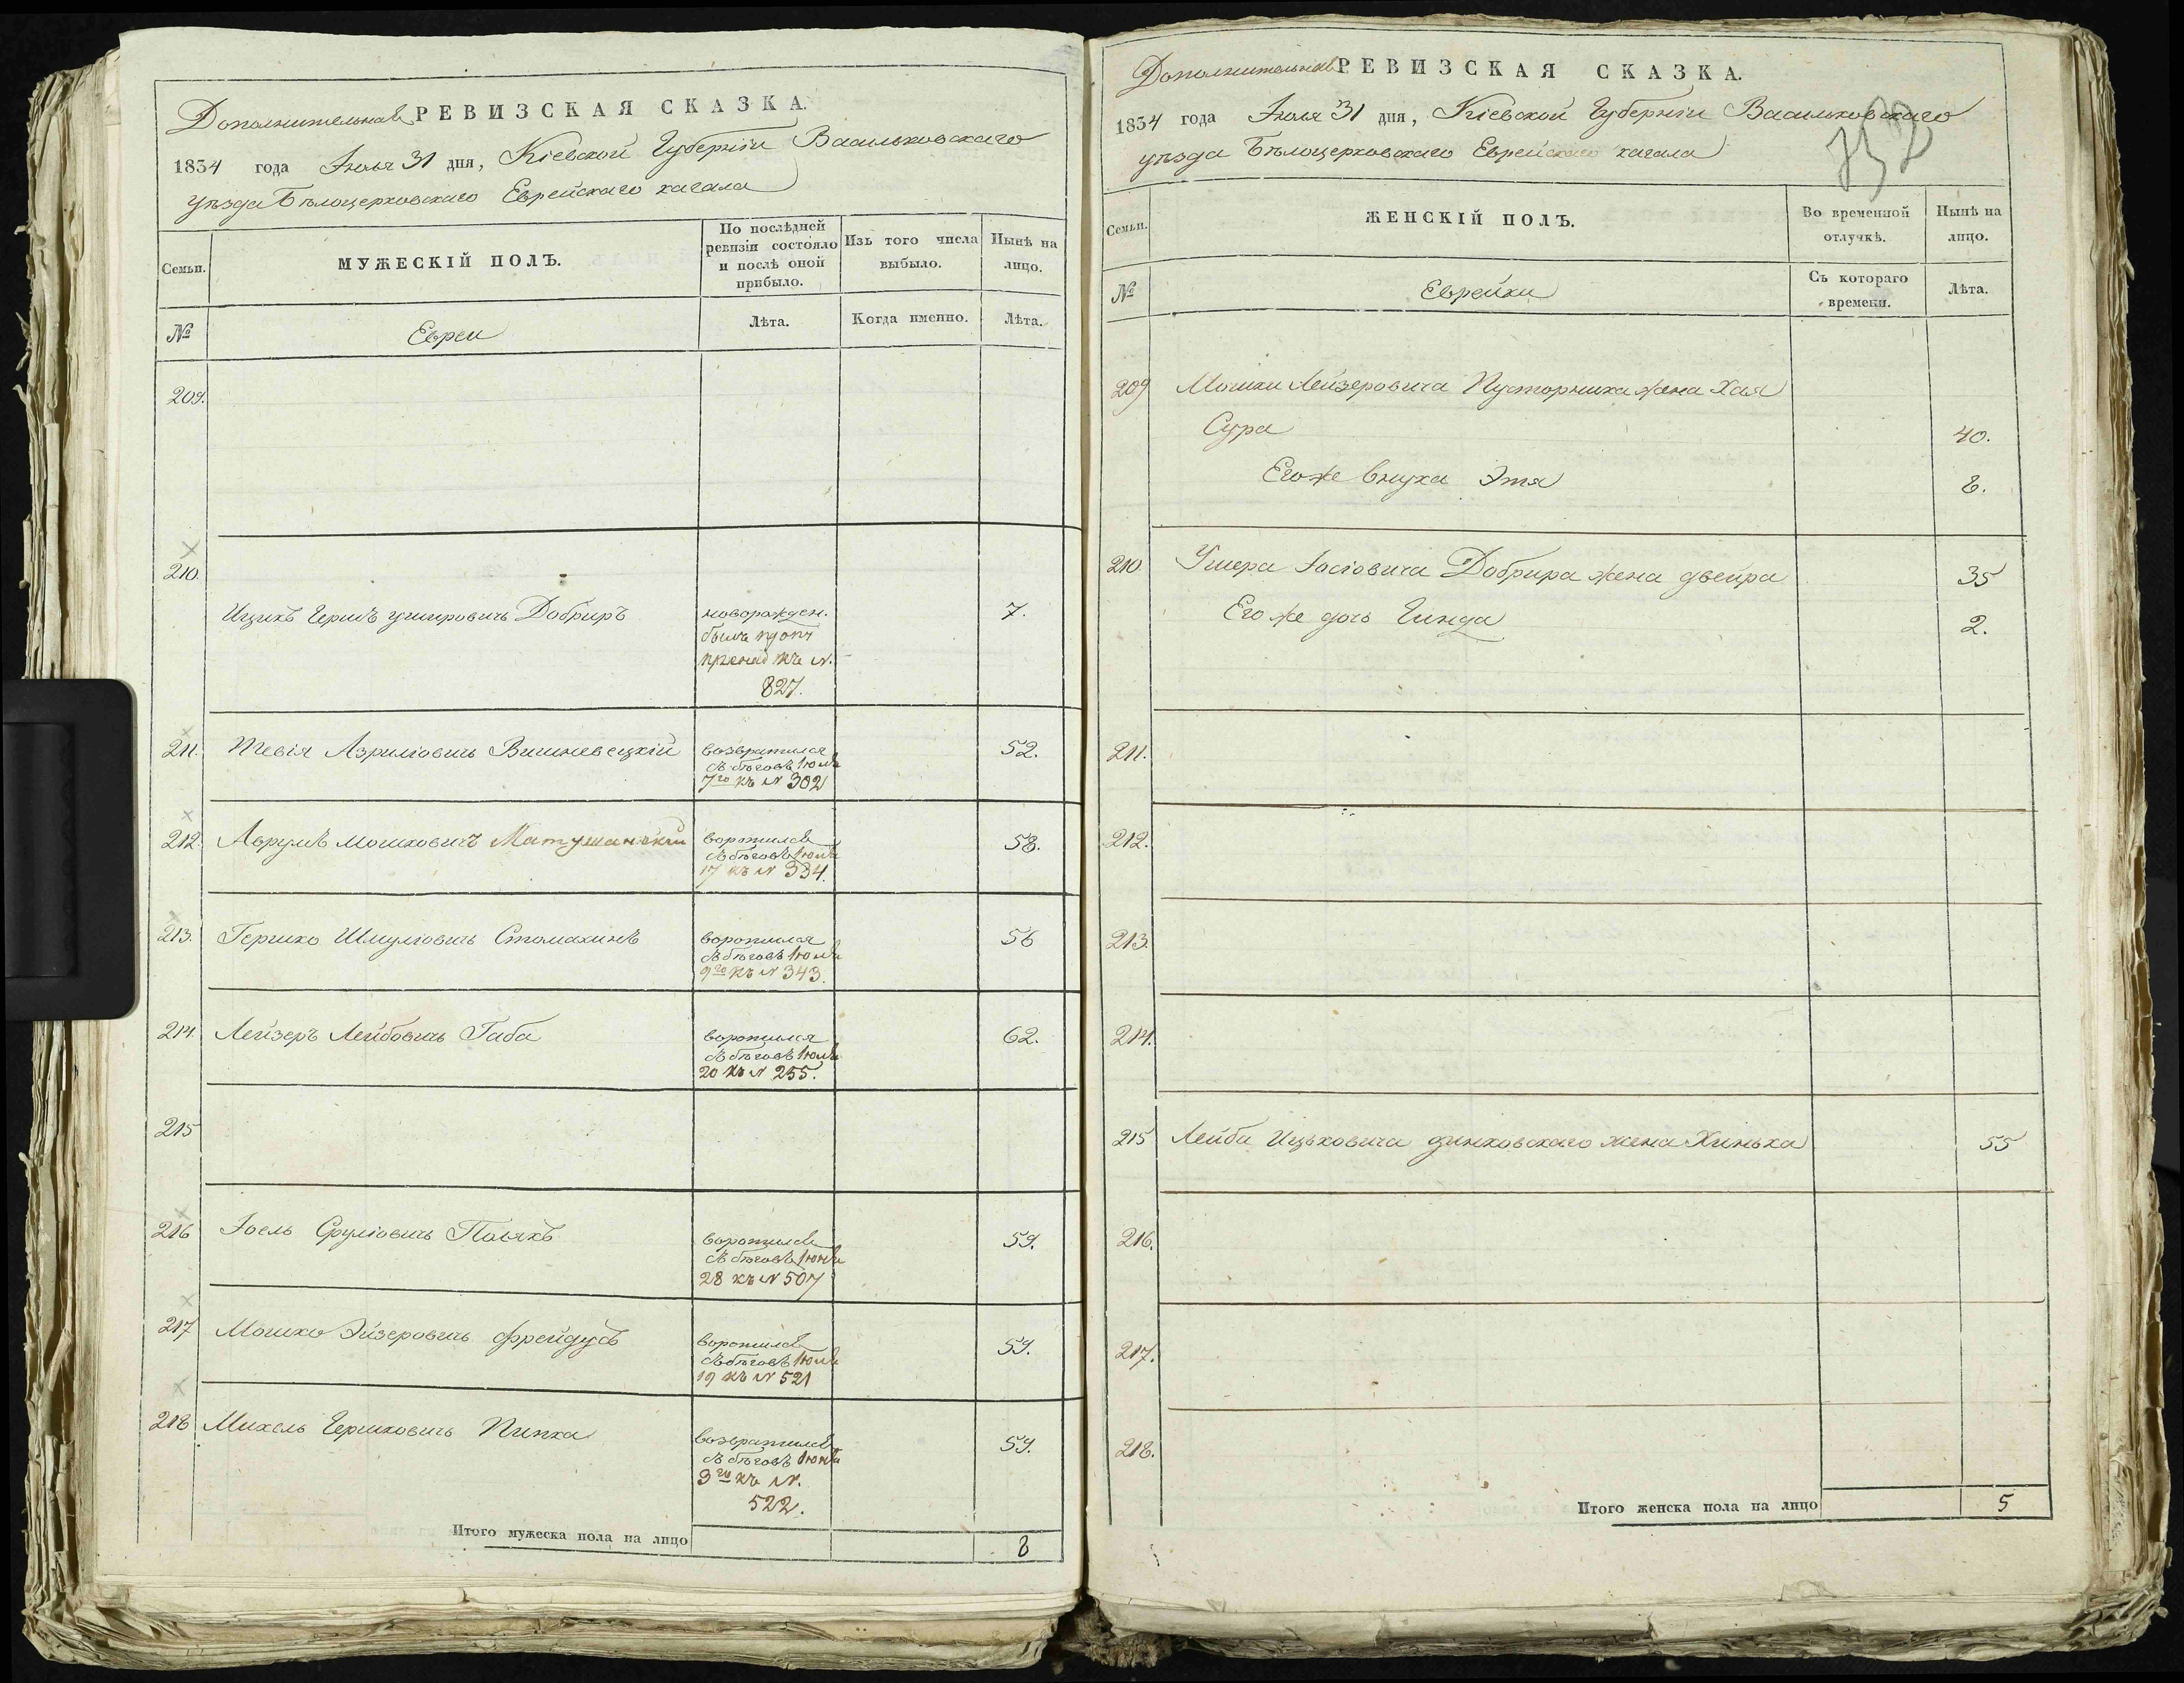 Дополнительная РЕВИЗСКАЯ СКАЗКА.
1834 года Іюля 31 дня, Кіевской Губерніи Васильковскаго
уѣзда Бѣлоцерковскаго Еврейскаго кагала
Семьи.
МУЖЕСКІЙ ПОЛЪ.
По послѣдней
ревизіи состояло
и послѣ оной
прибыло.
Изъ того числа
выбыло.
Нынѣ на
лицо.
№
Евреи
Лѣта.
Когда именно.
Лѣта.
209.
210.
Ицикъ Гершъ Ушировичъ Добриръ новорожден. 7.
827.
211. Тевія Азриліовичъ Вишневецкій возвратился 52.
съ бѣговъ Іюля
7го къ № 302
212. Аврумъ Мошковичъ Матушанскій воротился 58.
съ бѣговъ Іюля
17 къ № 334.
213. Гершко Шмуліовичъ Стомахинъ воротился 56
съ бѣговъ Іюля
9го къ № 343.
214. Лейзеръ Лейбовичъ Габа воротился 62.
съ бѣговъ Іюля
20 къ № 255.
215
216 Іоель Сруліовичъ Полякъ воротился 59.
съ бѣговъ Іюня
28 къ № 507
217 Мошко Эйзеровичъ Фрейдусъ воротился 59.
съ бѣговъ Іюля
19 къ № 521
218 Михель Гершковичъ Пипка возвратился 59.
съ бѣговъ Іюня
3го къ №.
522.
Итого мужеска пола на лицо 8
Дополнительная РЕВИЗСКАЯ СКАЗКА.
1834 года Іюля 31 дня, Кіевской Губерніи Васильковскаго
уѣзда Бѣлоцерковскаго Еврейскаго кагала
Семьи.
ЖЕНСКІЙ ПОЛЪ.
Во временной
отлучкѣ.
Нынѣ на
лицо.
№
Еврейки
Съ котораго
времени.
Лѣта.
209 Мошки Лейзеровича Пусторника жена Хая
Сура 40.
Его же внука Этя 8.
210. Ушера Іосіовича Добрира жена Двейра 35
Его же дочь Гинда 2.
211.
212.
213.
214.
215 Лейба Ицьковича Динковскаго жена Хинька 55
216.
217.
218.
Итого женска пола на лицо 5